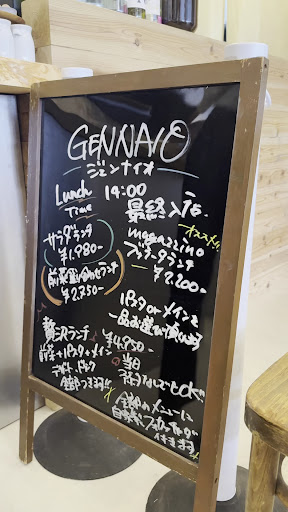 GENNAIO
ジェンナイオ
Lunch Time 14:00
最終入店
サラダランチ
¥1,980-
オススメ!
magazzino
プリータランチ
¥2,200-
前菜盛り合わせランチ
¥2,750-
パスタorメインを
一品お選び頂けます
贅沢ランチ ¥4,950-
前菜+パスタ+メイン
デザート
全部つきます!!
当日
予約なしでもOKです
全部のメニューに
自家製フォカッチャが
付きます